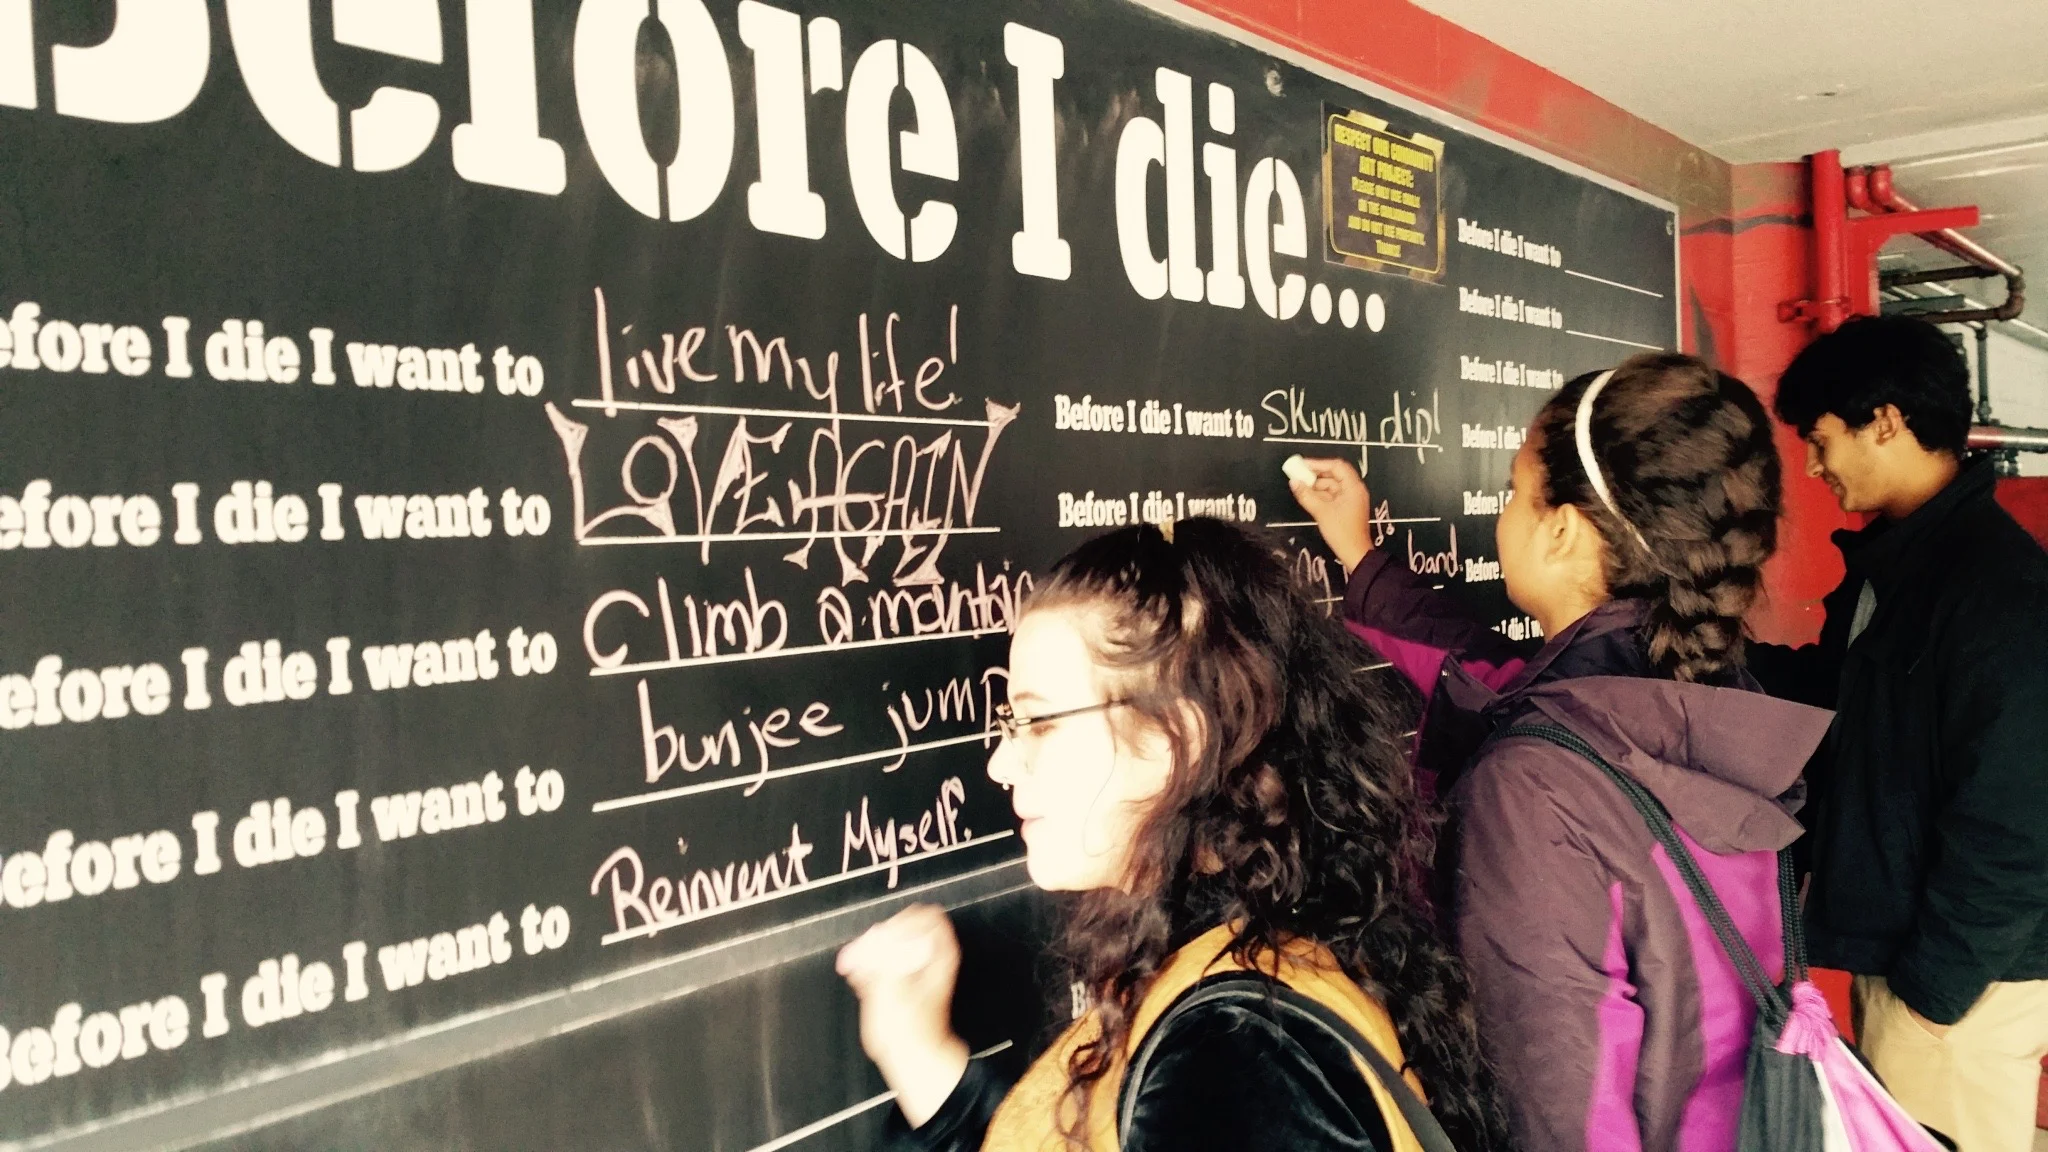 Before I die...
RESPECT OUR COMMUNITY
ART PROJECT:
PLEASE ONLY USE CHALK
ON THE CHALKBOARD
AND DO NOT USE PROFANITY.
THANKS!
efore I die I want to live my life!
efore I die I want to LOVE AGAIN
efore I die I want to Climb a mountain
Before I die I want to bunjee jump
Before I die I want to Reinvent Myself.
Before I die I want to Skinny dip!
Before I die I want to
band
Before I die I want to
Before I die I want to
Before I die I want to
Before I
Before
Before
die I w